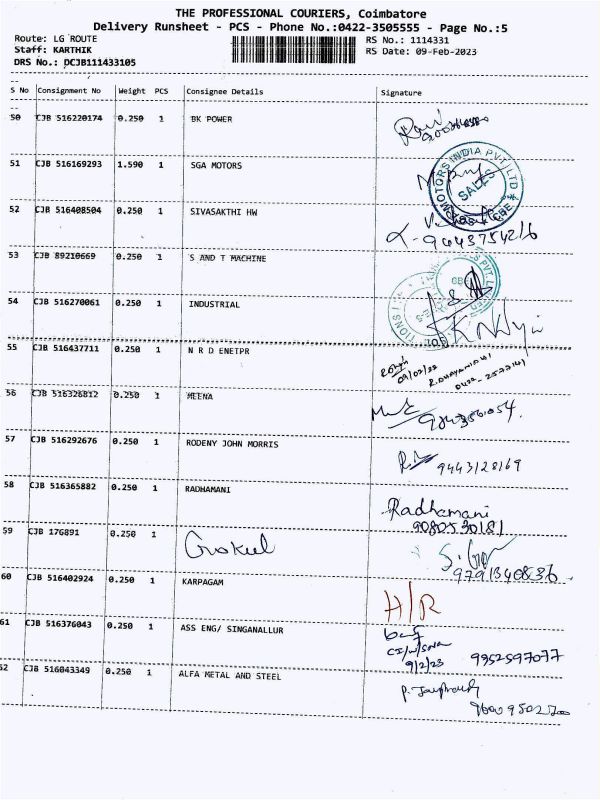 THE PROFESSIONAL COURIERS, Coimbatore
Delivery Runsheet - PCS - Phone No.:0422-3505555 - Page No.:5
Route: LG ROUTE RS No.: 1114331
Staff: KARTHIK RS Date: 09-Feb-2023
DRS No.: DCJB111433105
S No Consignment No Weight PCS Consignee Details Signature
50 CJB 516220174 0.250 1 BK POWER
51 CJB 516169293 1.590 1 SGA MOTORS
MOTORS INDIA PVT LTD
SALES
CBE
52 CJB 516408504 0.250 1 SIVASAKTHI HW
9443754216
53 CJB 89210669 0.250 1 S AND T MACHINE
54 CJB 516270061 0.250 1 INDUSTRIAL
55 CJB 516437711 0.250 1 N R D ENETPR
56 CJB 516326812 0.250 1 MEENA
57 CJB 516292676 0.250 1 RODENY JOHN MORRIS
9443128169
58 CJB 516365882 0.250 1 RADHAMANI
Radhamani
9080530181
59 CJB 176891 0.250 1 Gokul
9791340836
60 CJB 516402924 0.250 1 KARPAGAM
H/R
61 CJB 516376043 0.250 1 ASS ENG/ SINGANALLUR
9/2/23 9952597077
52 CJB 516043349 0.250 1 ALFA METAL AND STEEL